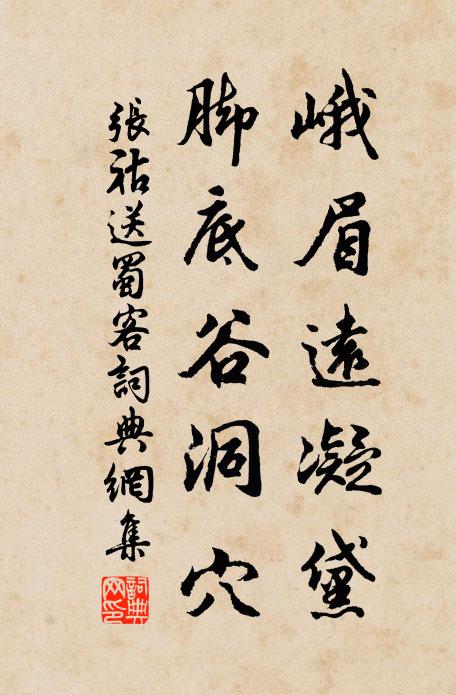 峨眉遠凝黛
脚底谷洞穴
張祜送蜀客詞典網集
詞典網印